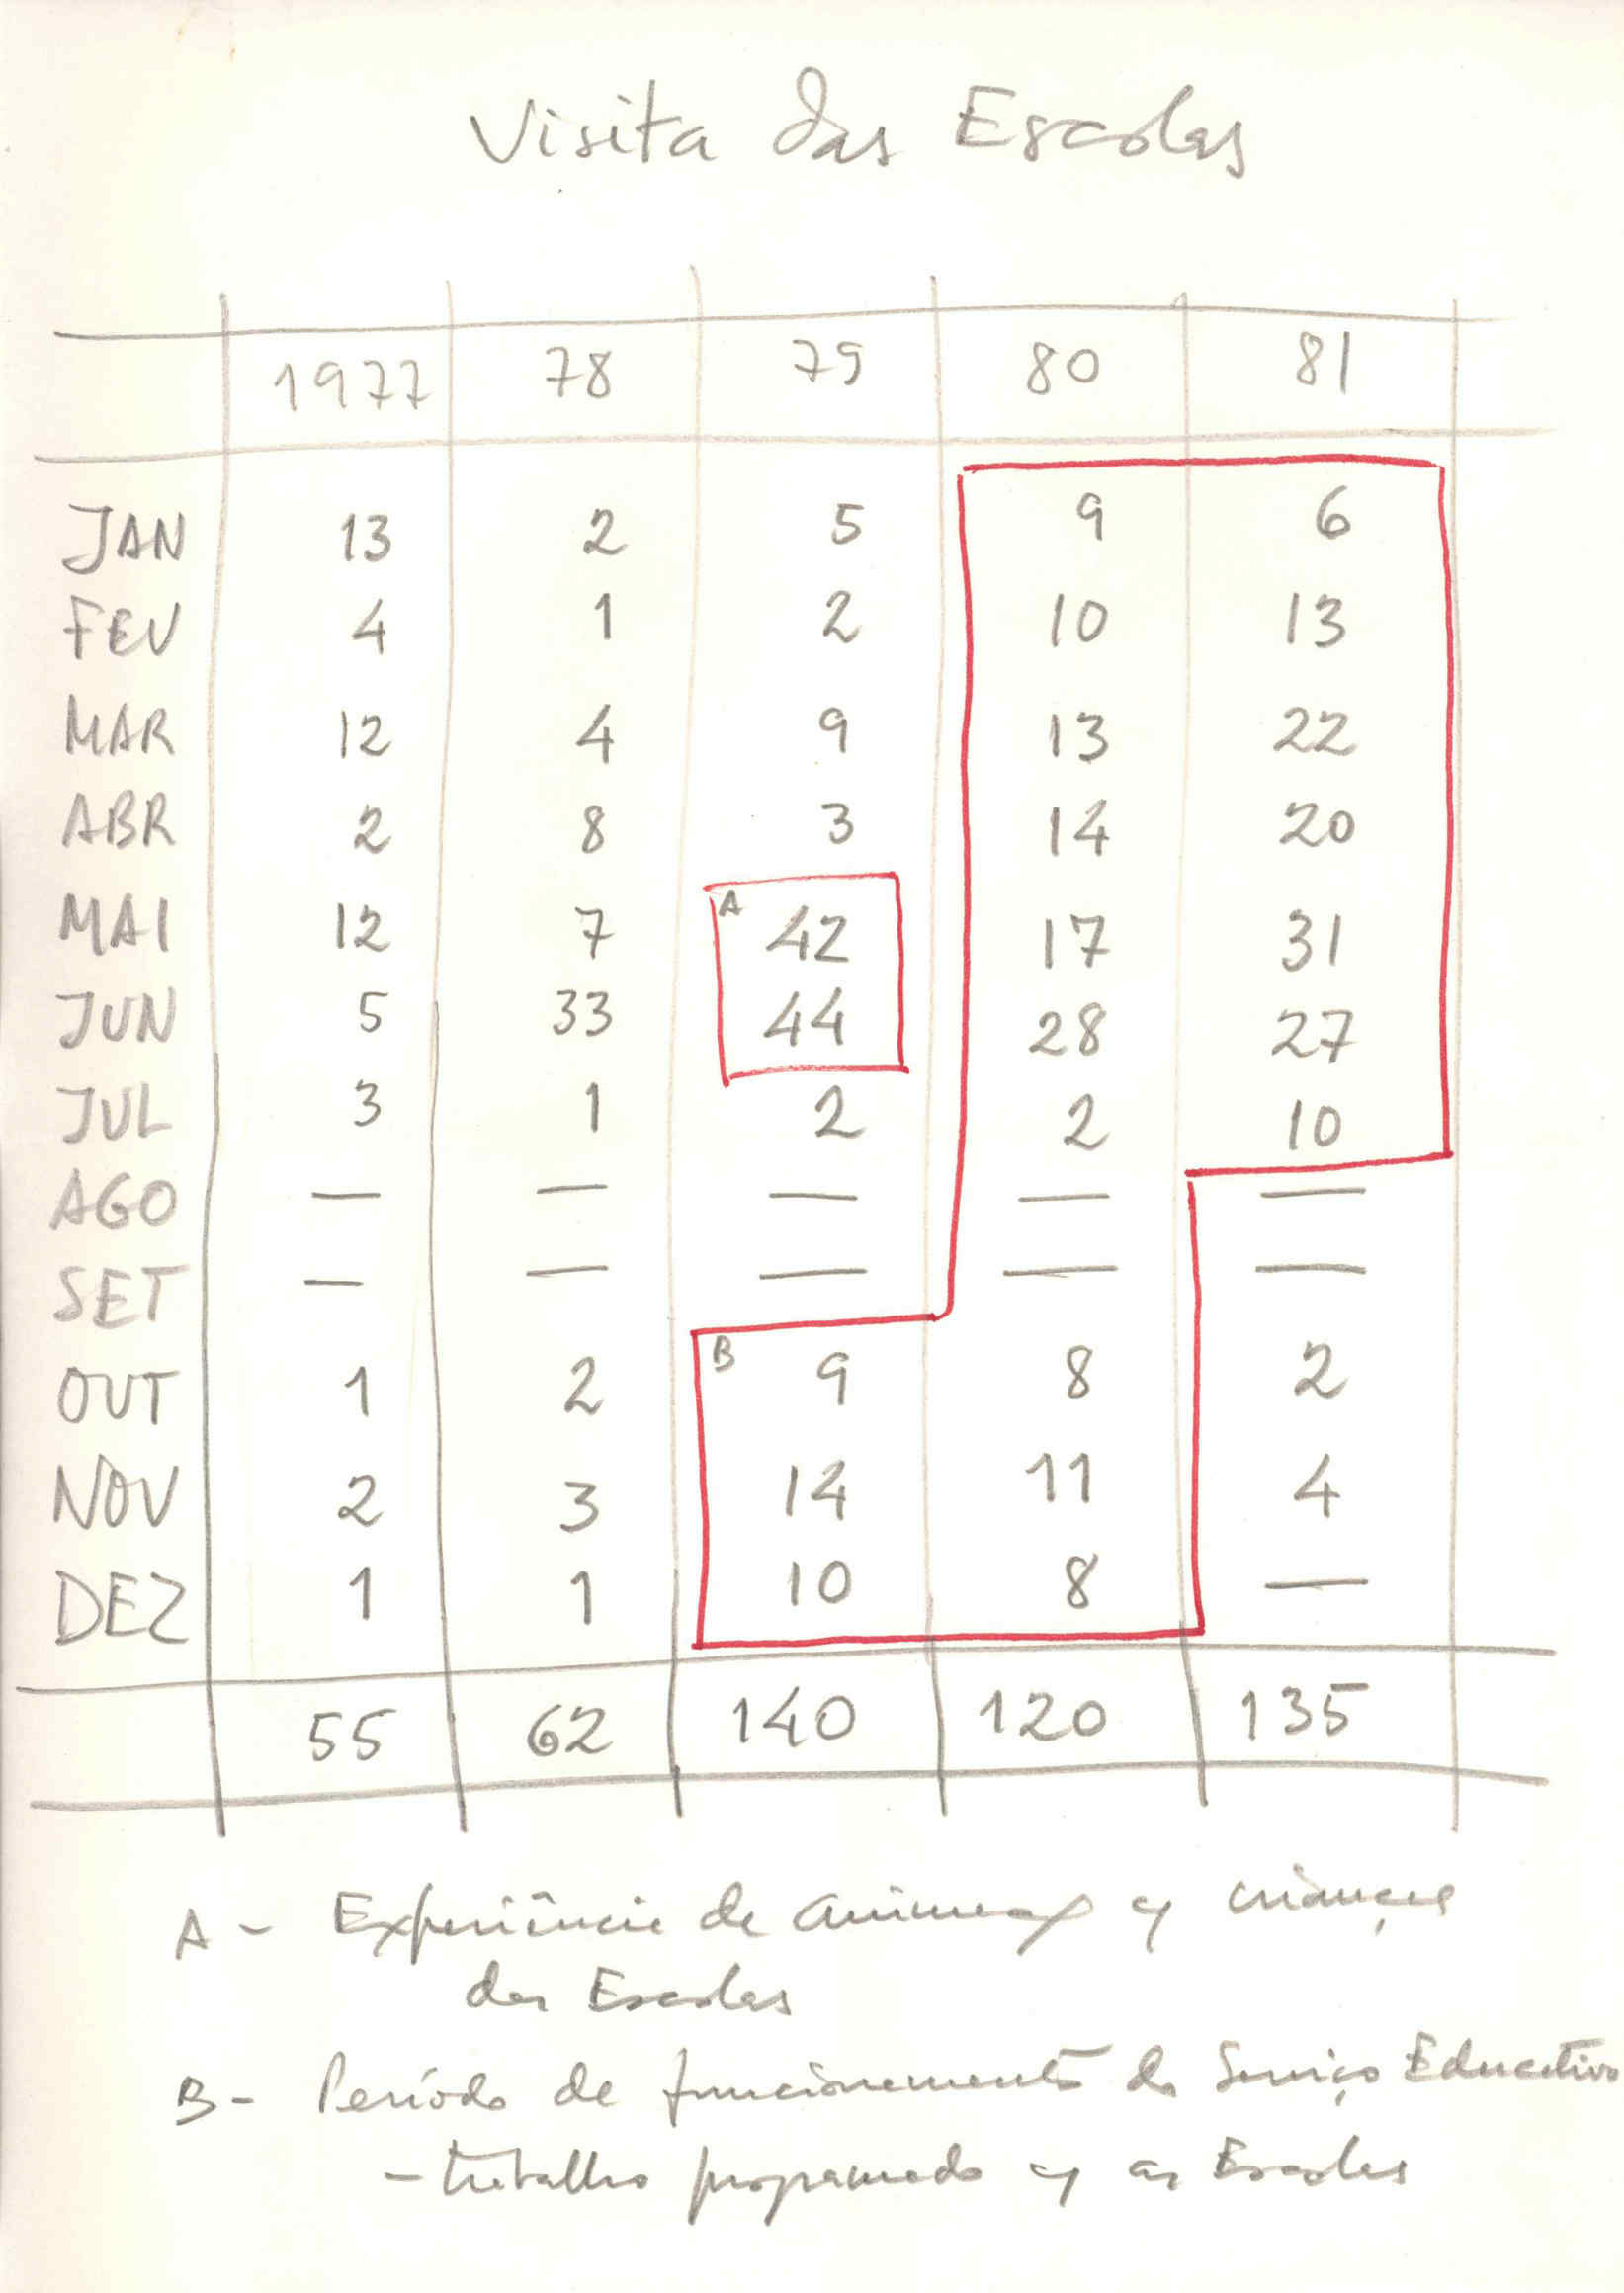 Visita das Escolas
1977 78 79 80 81
JAN 13 2 5 9 6
FEV 4 1 2 10 13
MAR 12 4 9 13 22
ABR 2 8 3 14 20
MAI 12 7 A 42 17 31
JUN 5 33 44 28 27
JUL 3 1 2 2 10
AGO — — — — —
SET — — — — —
OUT 1 2 B 9 8 2
NOV 2 3 14 11 4
DEZ 1 1 10 8 —
55 62 140 120 135
A - Experiência de crianças
das Escolas
B - Período de funcionamento do Serviço Educativo
- trabalho programado as Escolas